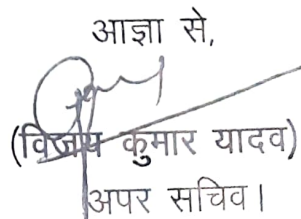 आज्ञा से,
(विजय कुमार यादव)
अपर सचिव।